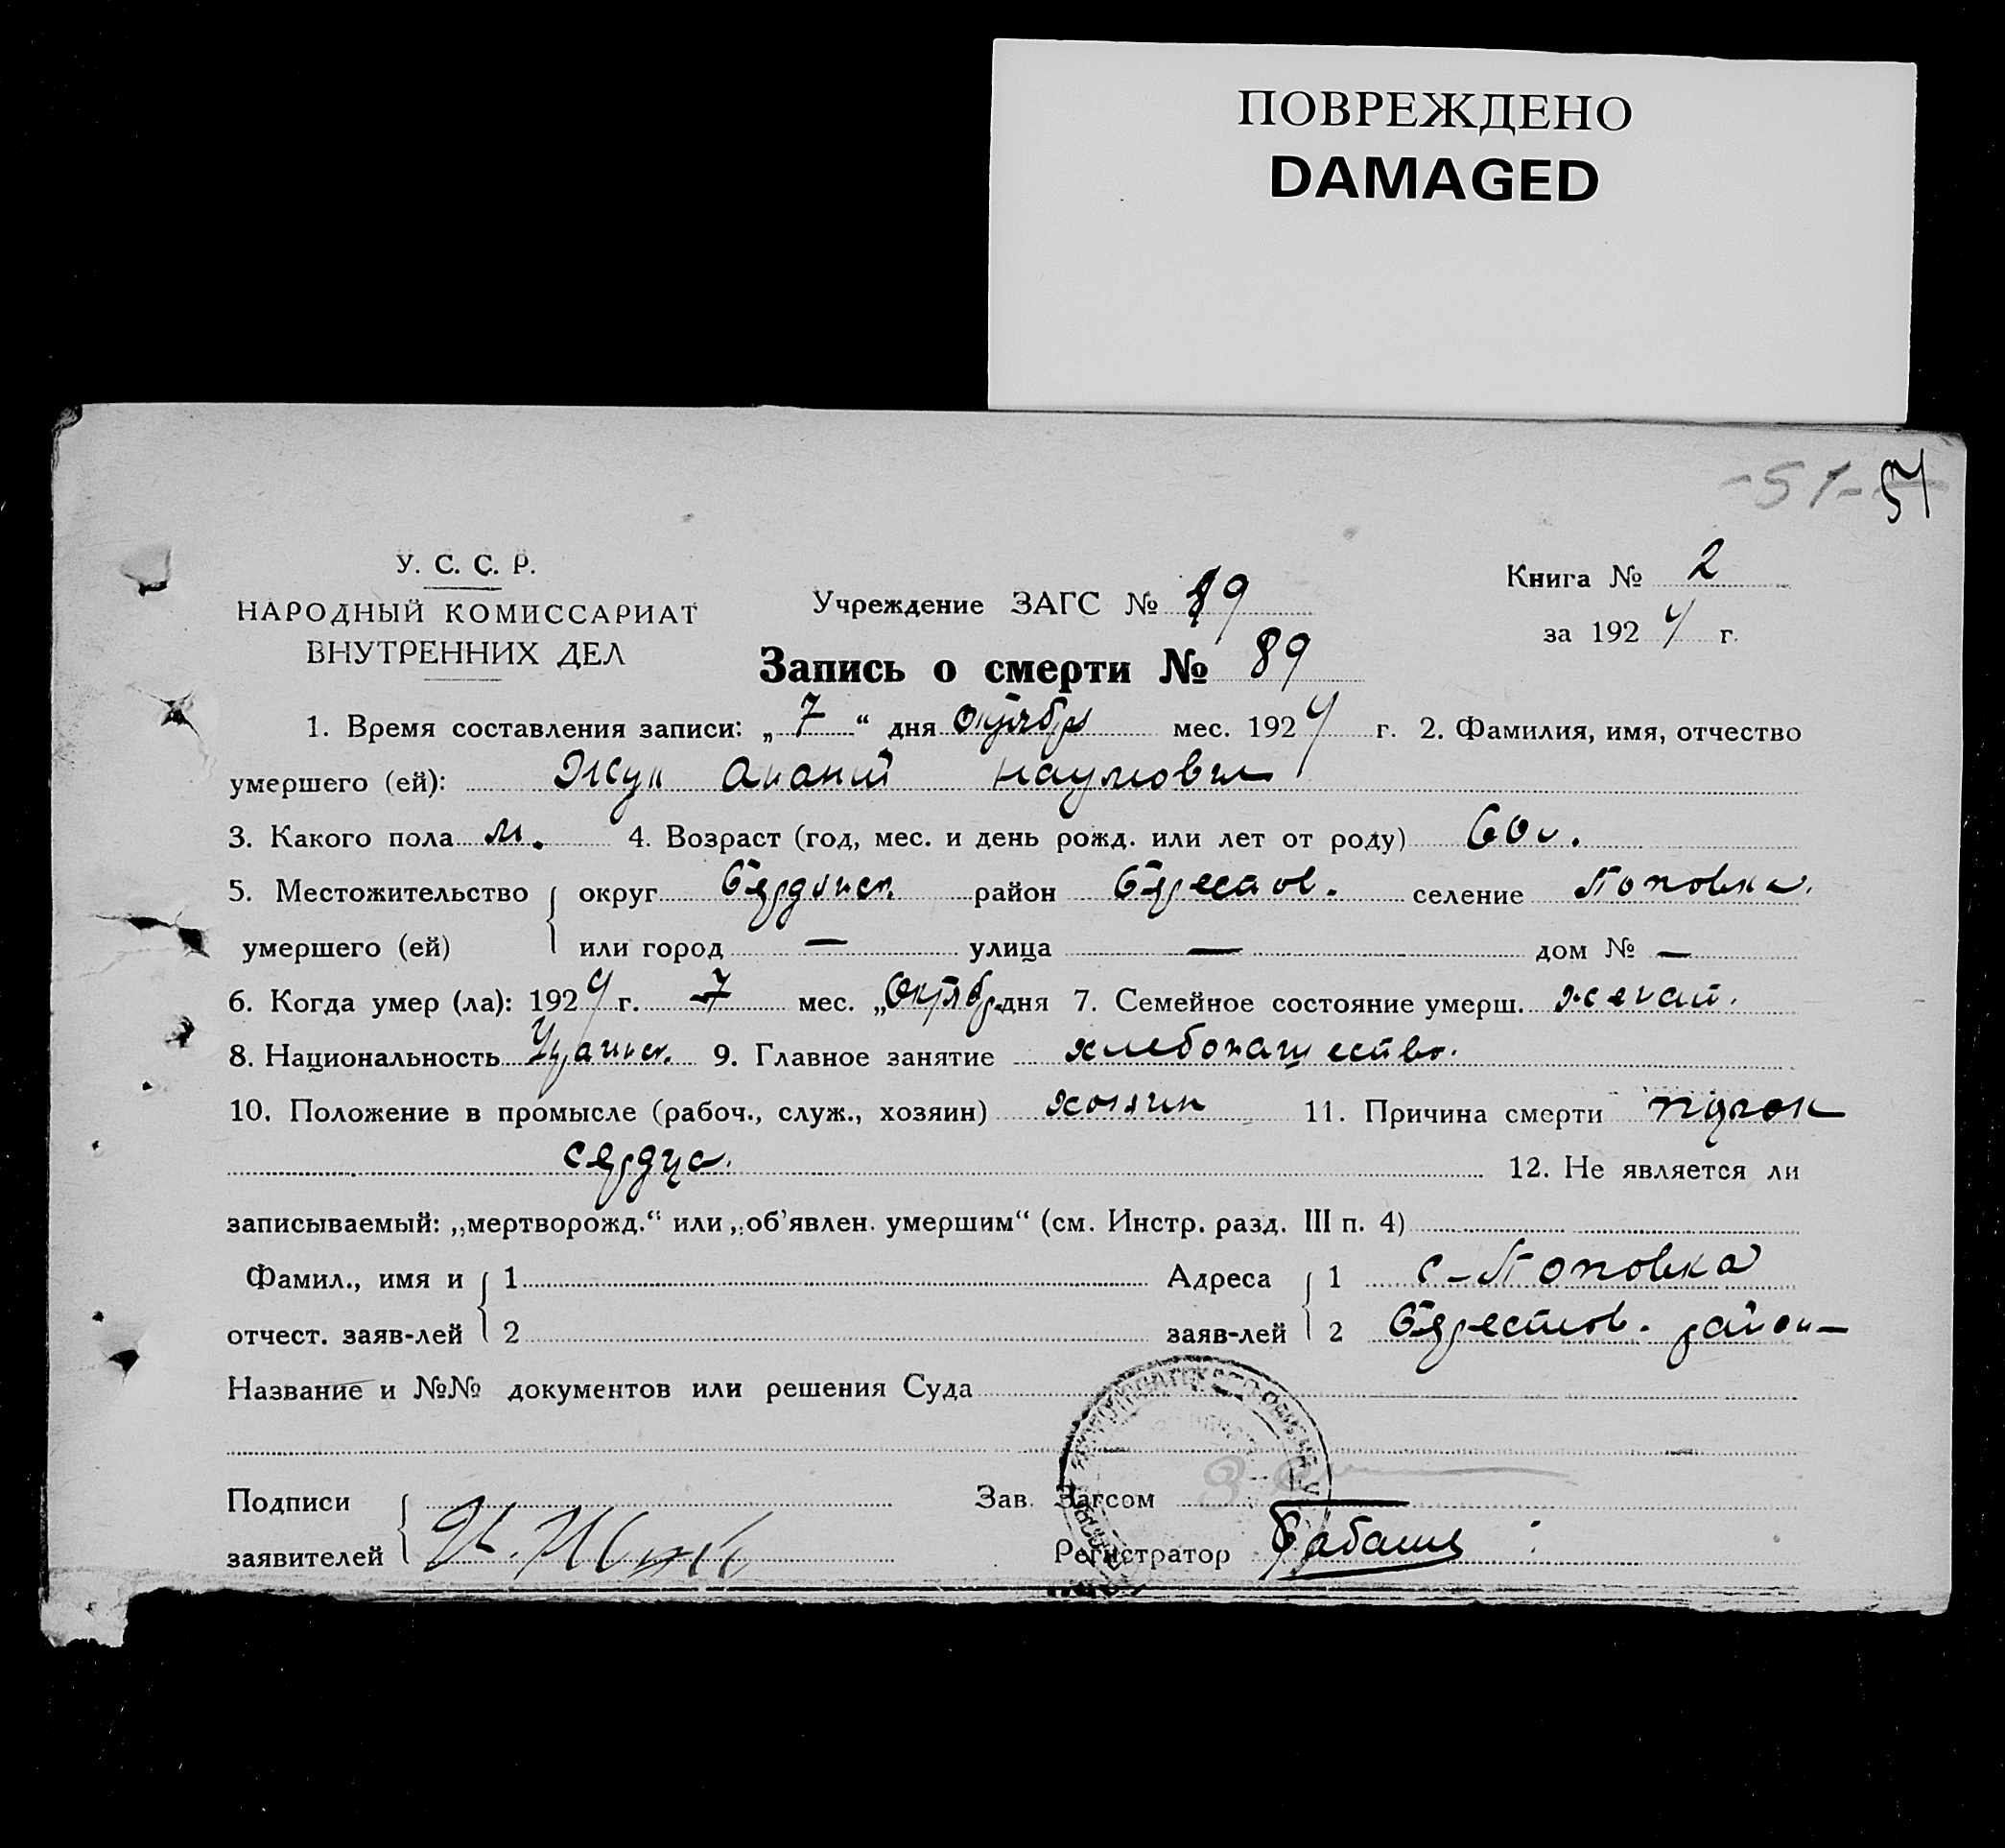 ПОВРЕЖДЕНО
DAMAGED
-51- 51
У. С. С. Р.
НАРОДНЫЙ КОМИССАРИАТ
ВНУТРЕННИХ ДЕЛ
Учреждение ЗАГС № 89
Книга № 2
за 1924 г.
Запись о смерти № 89
1. Время составления записи: „7“ дня Октябр мес. 1924 г. 2. Фамилия, имя, отчество
умершего (ей): Жук Ананий Наумович
3. Какого пола м. 4. Возраст (год, мес. и день рожд. или лет от роду) 60 л.
5. Местожительство округ Бердянск район Берестов. селение Поповка.
умершего (ей) или город — улица — дом № —
6. Когда умер (ла): 1924 г. 7 мес. „Октябр дня 7. Семейное состояние умерш. женат.
8. Национальность Украинск. 9. Главное занятие хлебопашество.
10. Положение в промысле (рабоч., служ., хозяин) хозяин 11. Причина смерти порок
сердца. 12. Не является ли
записываемый: „мертворожд.“ или „об’явлен. умершим“ (см. Инстр. разд. III п. 4)
Фамил., имя и 1 Адреса 1 с-Поповка
отчест. заяв-лей 2 заяв-лей 2 Берестов. район
Название и №№ документов или решения Суда
Подписи Зав. Загсом
заявителей Регистратор